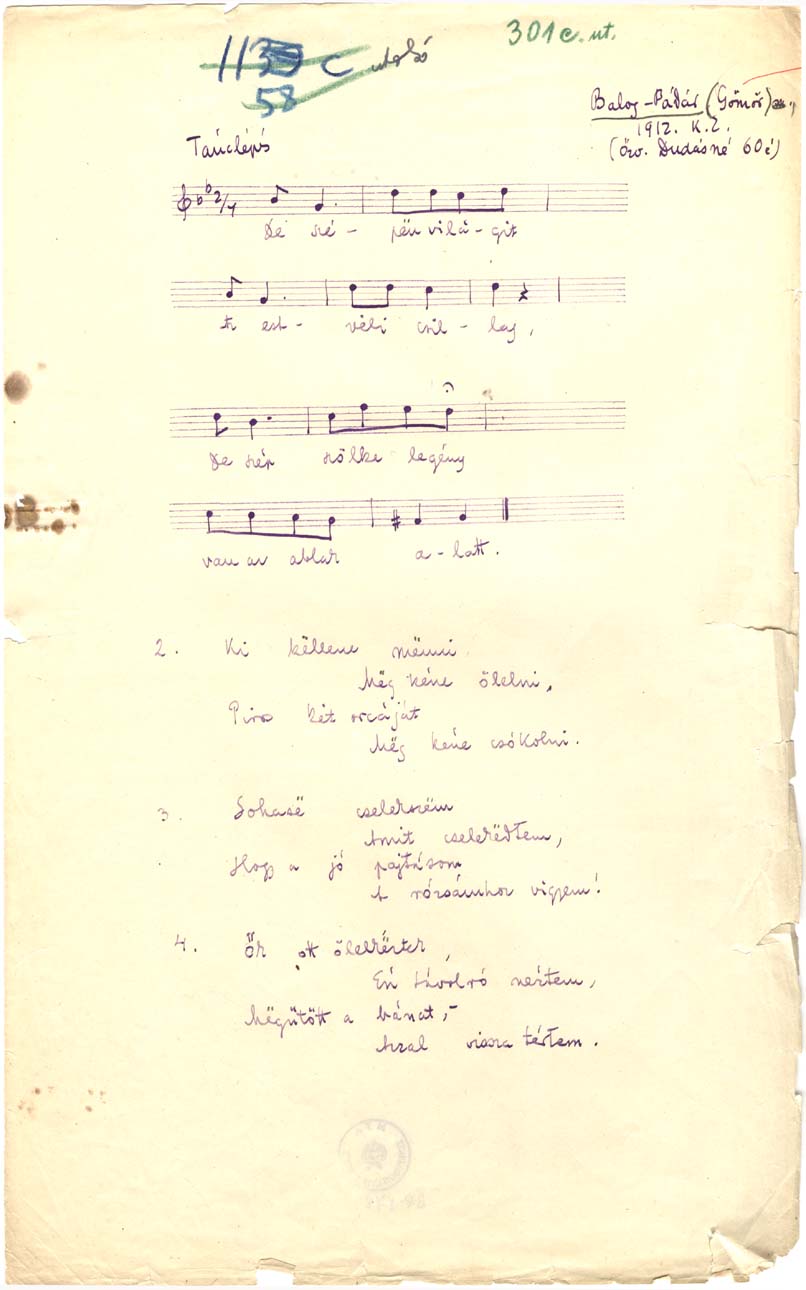 301 c. ut.
113 C utolsó
58
Balog-Pádár (Gömör)
1912. K. Z.
(özv. Dudásné 60 é)
Tánclépés
2/4
De szé - pën vilá - git
A est - véli csil - lag,
De szép szőlke legény
van az ablak a - latt.
2. Ki këllene mënni
Mëg kéne ölelni,
Piros két orcáját
Mëg kéne csókolni.
3. Sohasë cselekszëm
Amit cselekëdtem,
Hogy a jó pajtásom
A rózsámhoz vigyem!
4. Ők ott ölelkëztek,
Én távolró néztem,
Mëgütött a bánat,-
Azzal vissza tértem.